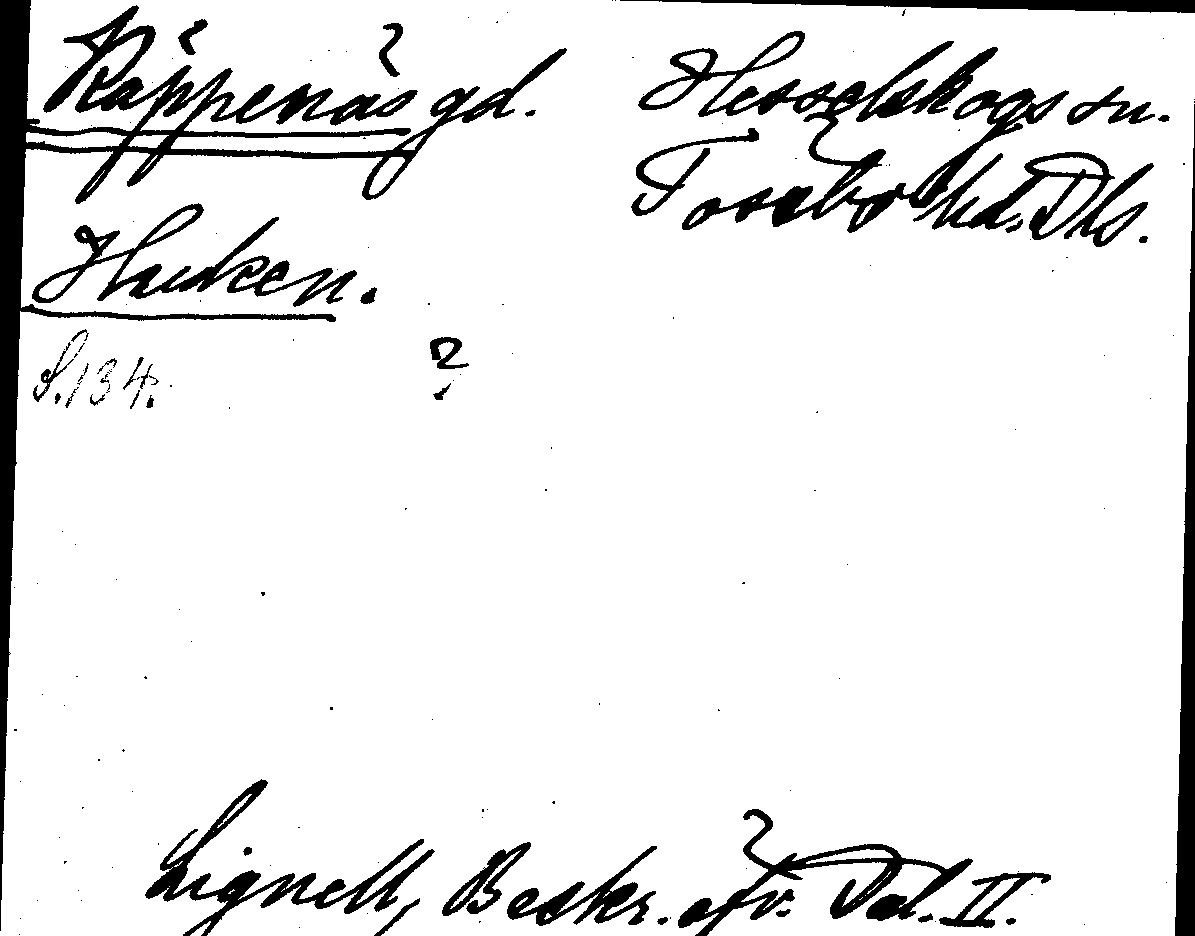 Räppenäs gd. Hesselskogs sn.
Tössbo hd. Dls.
Hauken.
S.134. ?
Lignell, Beskr. öfv. Dal. II.